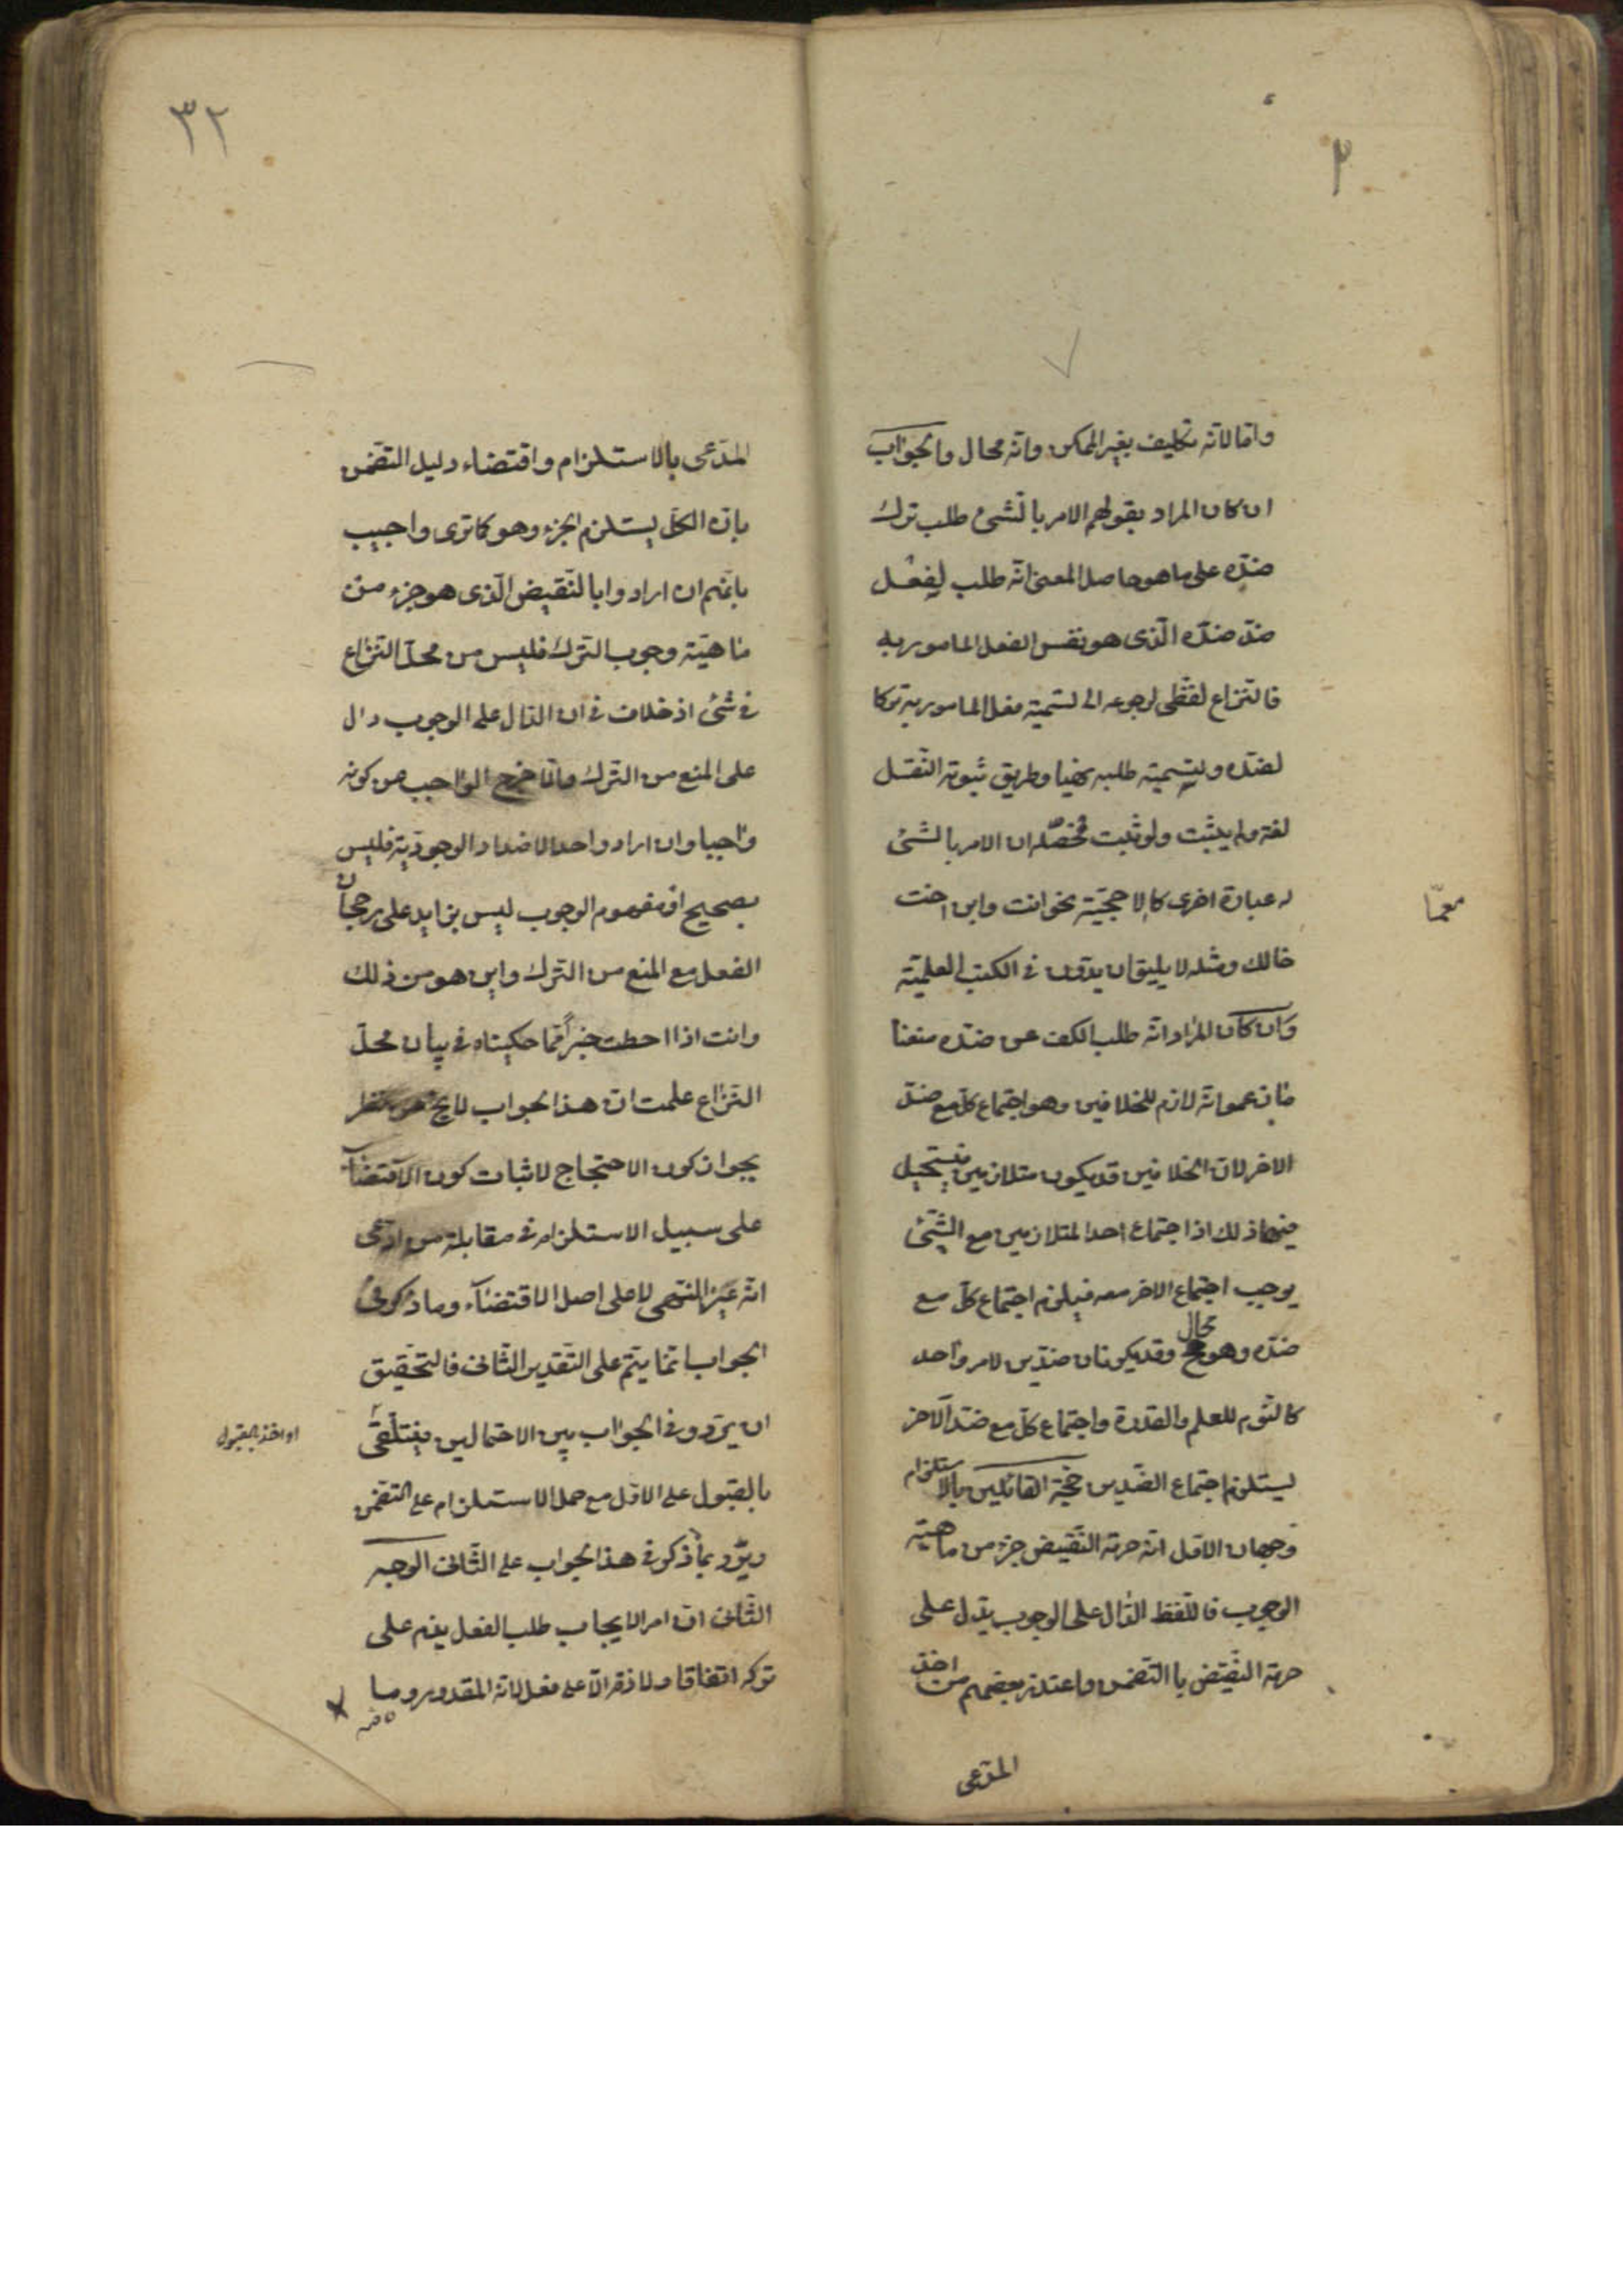 واما لانه تكليف بغير الممكن وانه محال والجواب
ان كان المراد بقولهم الامر بالشئ طلب ترك
ضده على ما هو حاصل المعنى انه طلب لفعل
ضد ضده الذى هو نفس الفعل المامور به
فالنزاع لفظى لرجوعه الى تسمية فعل المامور به تركا
لضده وتسمية طلبه نهيا وطريق ثبوته النقل
لغة ولم يثبت ولو ثبت فمحصله ان الامر بالشئ
له عبارة اخرى كالاحجية نحو انت وابن اخت
معما
خالك ومثله لا يليق ان يدون فى الكتب العلمية
وان كان المراد انه طلب الكف عن ضده منعنا
ما زعموا انه لازم للخلافين وهو اجتماع كل مع ضد
الاخر لان الخلافين قد يكون متلازمين فيستحيل
فيهما ذلك اذ اجتماع احد المتلازمين مع الشئ
يوجب اجتماع الاخر معه فيلزم اجتماع كل مع
ضده وهو محال وقد يكونان ضدين لامر واحد
كالنوم للعلم والقدرة واجتماع كل مع ضد الاخر
يستلزم اجتماع الضدين حجة القائلين بالاستلزام
وجهان الاول ان حرمة النقيض جزء من ماهية
الوجوب فاللفظ الدال على الوجوب يدل على
حرمة النقيض بالتضمن واعتذر بعضهم من اخذ
المدعى
٣٢
المدعى بالاستلزام واقتضاء دليل التضمن
بان الكل يستلزم الجزء وهو كما ترى واجيب
بانهم ان ارادوا بالنقيض الذى هو جزء من
ماهية وجوب الترك فليس من محل النزاع
فى شئ اذ خلاف فى ان الدال على الوجوب دال
على المنع من الترك والا خرج الواجب عن كونه
واجبا وان اراد واحد الاضداد الوجودية فليس
بصحيح اذ مفهوم الوجوب ليس بزايد على رجحان
الفعل مع المنع من الترك واين هو من ذلك
وانت اذا احطت خبرا بما حكيناه فى بيان محل
النزاع علمت ان هذا الجواب لا يخ عن نظر
بجواز كون الاحتجاج لاثبات كون الاقتضاء
على سبيل الاستلزام فى مقابلة من ادعى
انه عين النهى لا على اصل الاقتضاء وما ذكر فى
الجواب انما يتم على التقدير الثانى فالتحقيق
ان يردد فى الجواب بين الاحتمالين فيتلقى
او اخذ بالقبول
بالقبول على الاول مع حمل الاستلزام على التضمن
ويرد بما ذكر فى هذا الجواب على الثانى الوجه
الثانى ان امر الايجاب طلب الفعل يذم على
تركه اتفاقا ولا ذم الا على فعل لانه المقدور وما